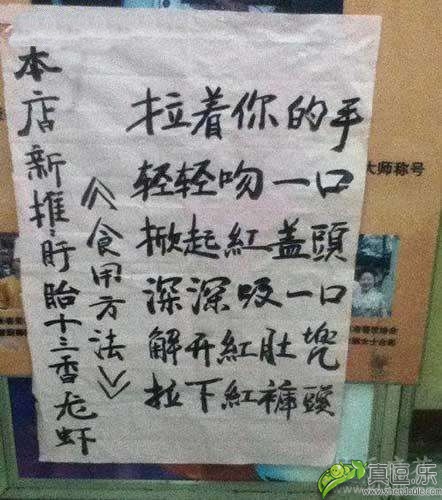 本店新推:盱眙十三香龙虾
《食用方法》
拉着你的手
轻轻吻一口
掀起紅蓋頭
深深吸一口
解开紅肚兜
拉下紅褲頭
大师称号
真逗.乐
www.zhendoule.com